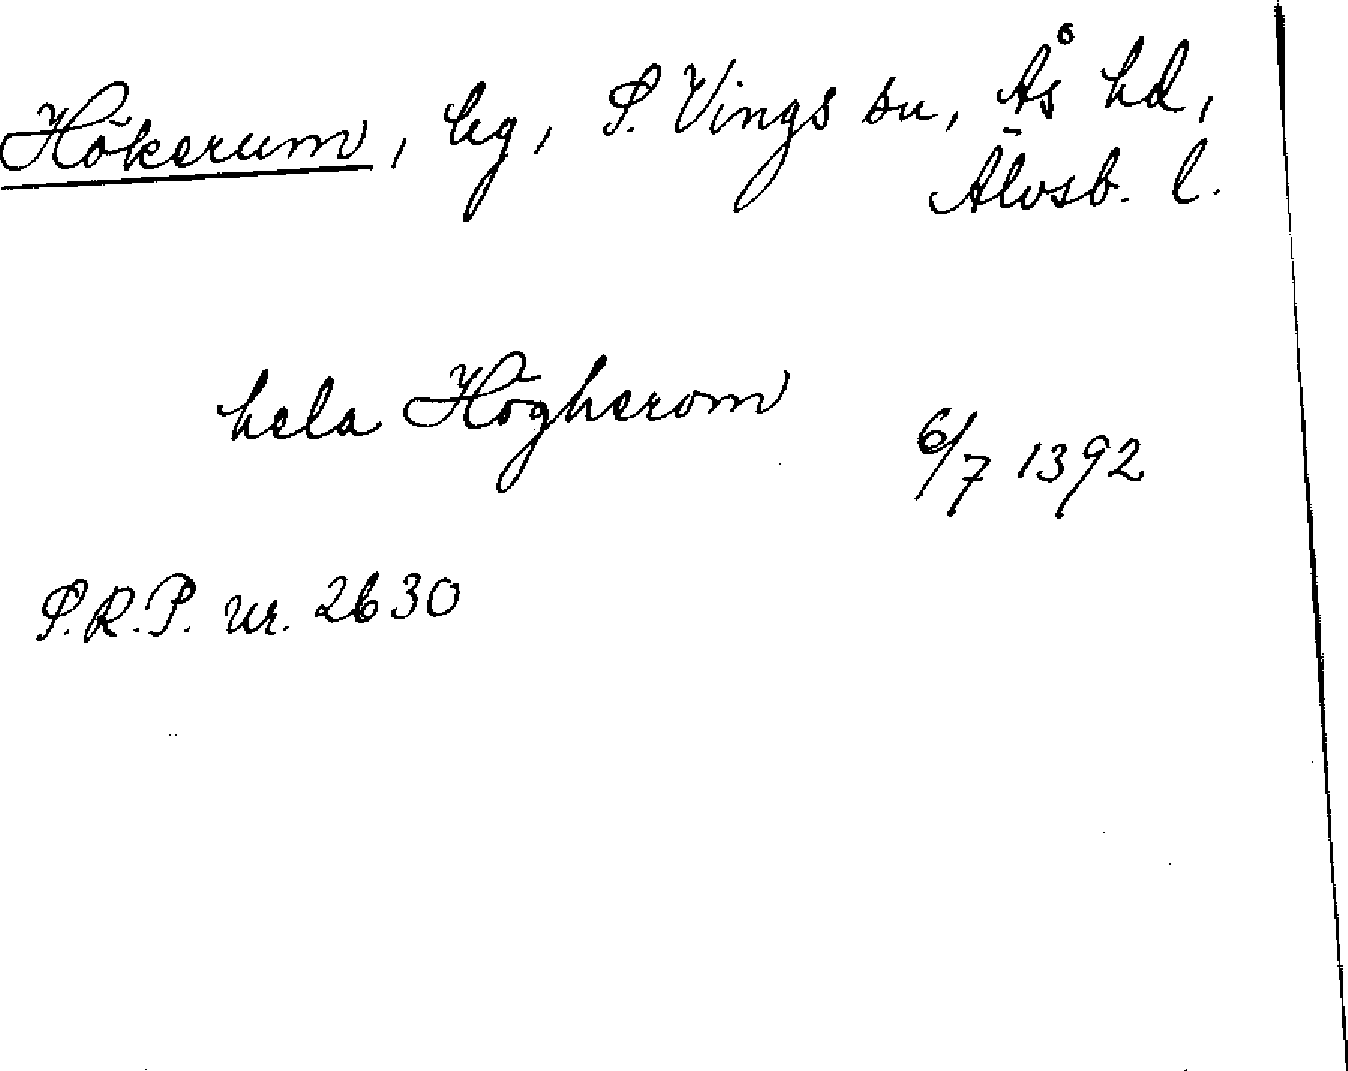 Hökerum, hg, S. Vings sn, Ås hd,
Älvsb. l.
hela Högherom
6/7 1392
S.R.P. nr. 2630